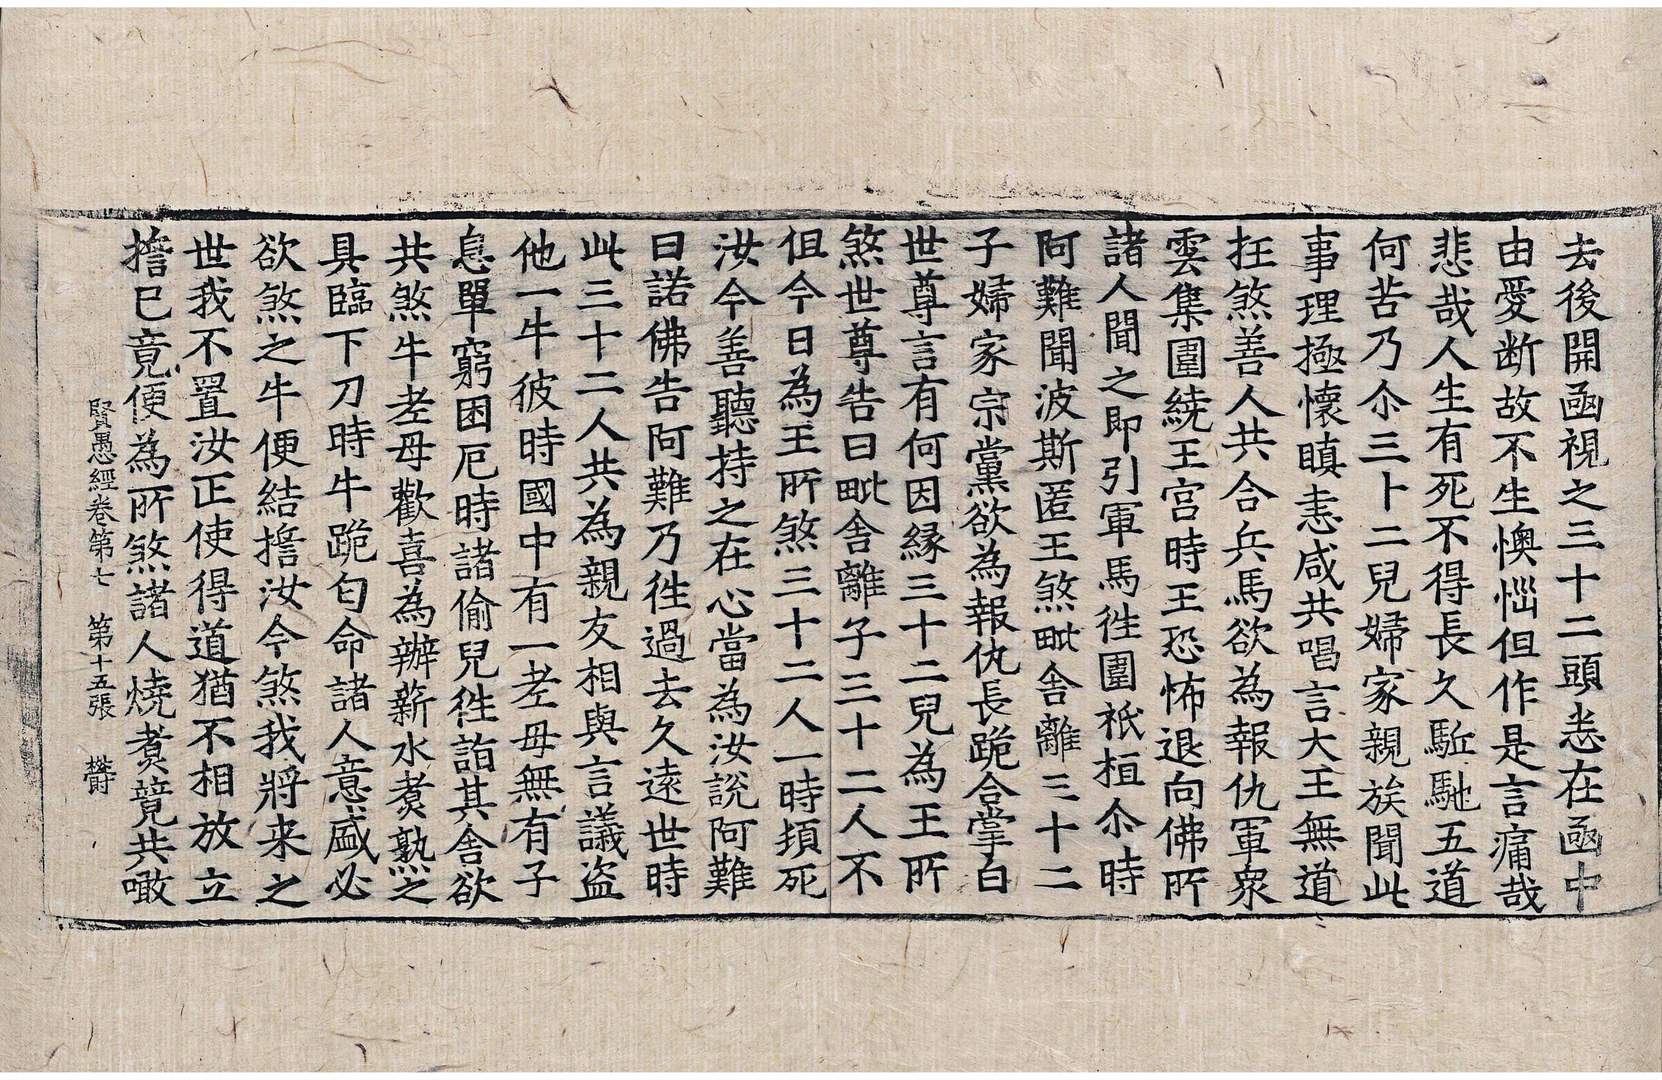 去後開函視之三十二頭悉在函中
由愛断故不生懊惱但作是言痛哉
悲哉人生有死不得長久駈馳五道
何苦乃尒三十二兒婦家親族聞此
事理極懷瞋恚咸共唱言大王無道
抂煞善人共合兵馬欲為報仇軍衆
雲集圍繞王宮時王恐怖退向佛所
諸人聞之即引軍馬徃圍祇桓尒時
阿難聞波斯匿王煞毗舍離三十二
子婦家宗黨欲為報仇長跪合掌白
世尊言有何因緣三十二兒為王所
煞世尊告曰毗舍離子三十二人不
但今日為王所煞三十二人一時頓死
汝今善聽持之在心當為汝說阿難
曰諾佛告阿難乃徃過去久遠世時
此三十二人共為親友相與言議盜
他一牛彼時國中有一老母無有子
息單窮困厄時諸偷兒徃詣其舍欲
共煞牛老母歡喜為辦薪水煑熟之
具臨下刀時牛跪匃命諸人意盛必
欲煞之牛便結擔汝今煞我將来之
世我不置汝正使得道猶不相放立
擔已竟便為所煞諸人燒煑竟共噉
賢愚經卷第七　第十五張　欝